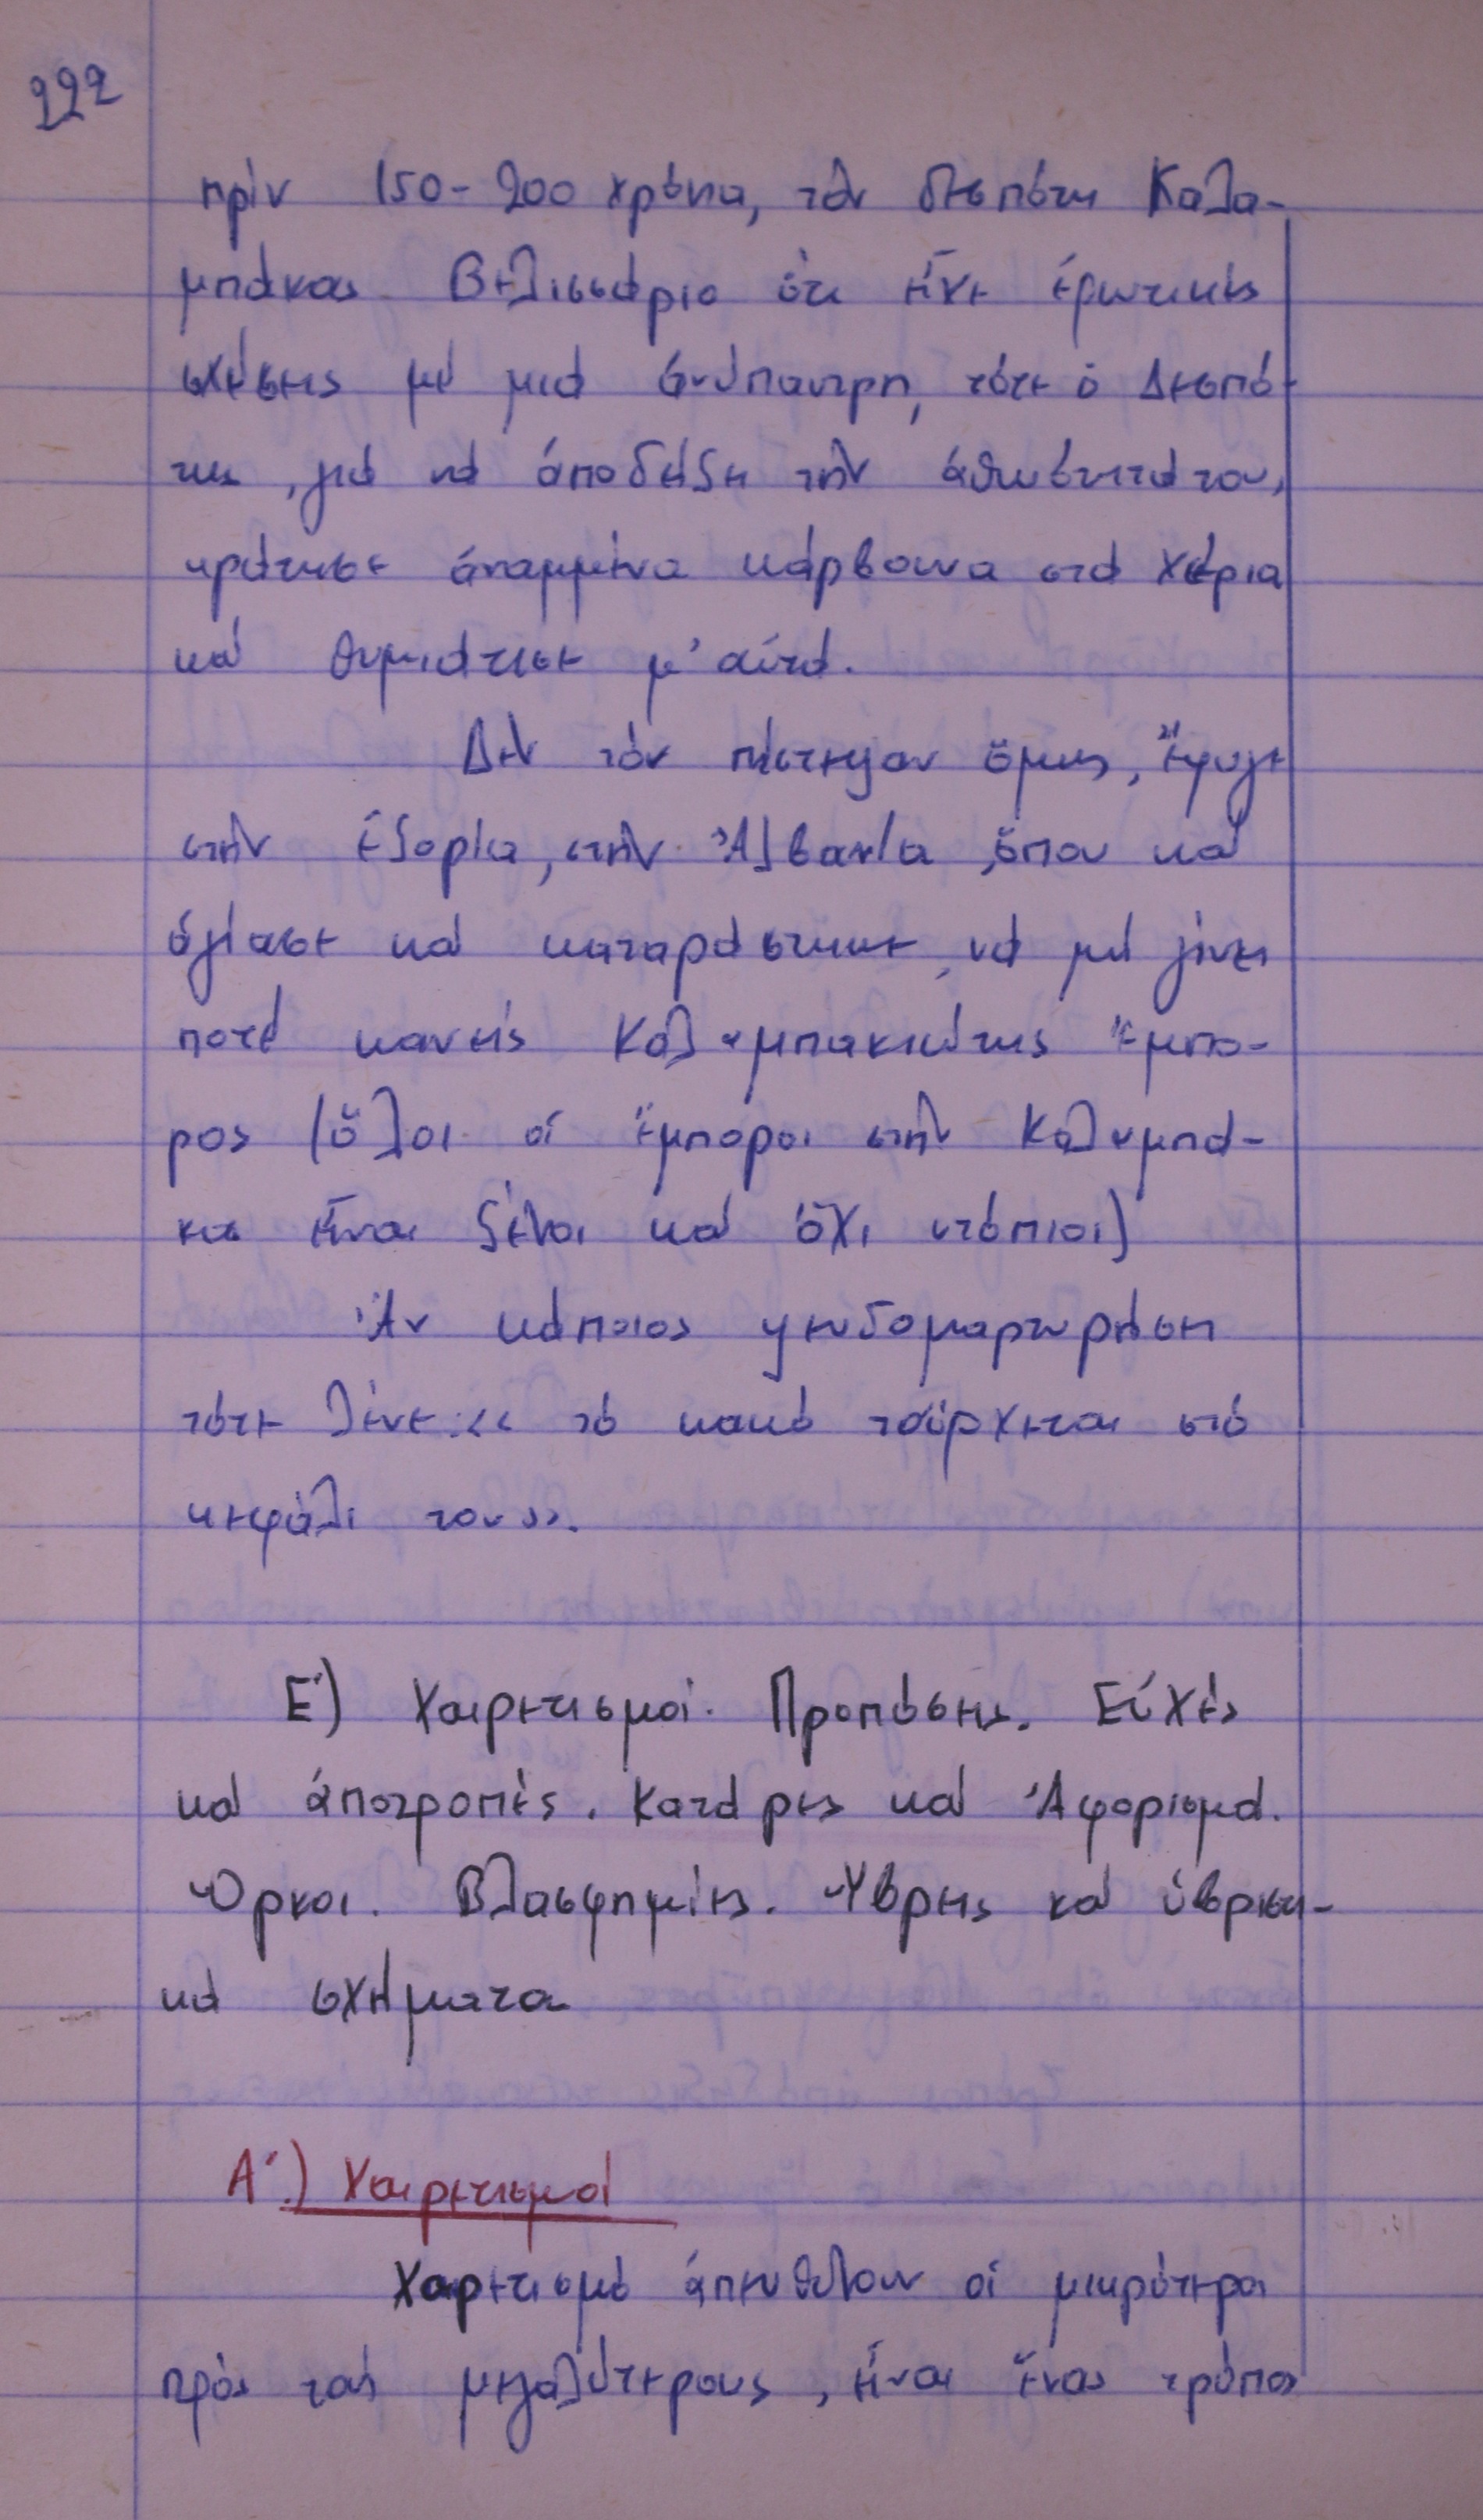 222
πρίν 150-200 χρόνια, τόν δεσπότη Καλα-
μπάκας Βελισσάριο ὅτι εἶχε ἐρωτικές
σχέσεις μέ μιά ἀνύπαντρη, τότε ὁ Δεσπό-
της, γιά νά ἀποδείξη τήν ἀθωότητά του,
κράτησε ἀναμμένα κάρβουνα στά χέρια
καί θυμιάτισε μ' αὐτά.
Δέν τόν πίστεψαν ὅμως, ἔφυγε
στήν ἐξορία, στήν Ἀλβανία, ὅπου καί
ἁγίασε καί καταράστηκε, νά μή γίνει
ποτέ κανείς Καλαμπακιώτης ἔμπο-
ρος (ὅλοι οἱ ἔμποροι στήν Καλαμπά-
κα εἶναι ξένοι καί ὄχι ντόπιοι)
Ἄν κάποιος ψευδομαρτυρήση
τότε λένε: << τό κακό τοὔρχεται στό
κεφάλι του >>.
Ε') Χαιρετισμοί. Προπόσεις. Εὐχές
καί ἀποτροπές. Κατάρες καί Ἀφορισμοί.
Ὅρκοι. Βλασφημίες. Ὕβρεις καί ὑβριστι-
κά σχήματα
Α'.) Χαιρετισμοί
Χαιρετισμό ἀπευθύνουν οἱ μικρότεροι
πρός τούς μεγαλύτερους, εἶναι ἕνας τρόπος